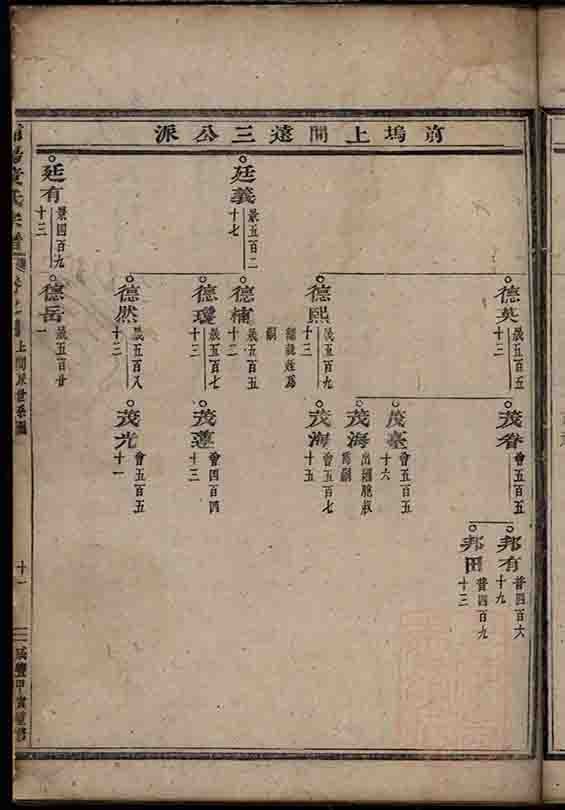 前塢上間遠三公派
廷義
景五百二
十七
廷有
景四百九
十三
德英
晟五百五
十三
德熙
晟五百九
十三
繼親姪為
嗣
德楠
晟五百五
十二
德瓊
晟五百七
十三
德然
晟五百八
十三
德岳
晟五百廿
一
茂眷
會五百五
茂臺
會五百五
十六
茂海
出繼胞叔
為嗣
茂海
會五百七
十五
茂蓮
會四百四
十三
茂光
會五百五
十一
邦有
昔四百六
十九
邦田
昔四百九
十三
上間派世系圖
十一
咸豐甲寅重修